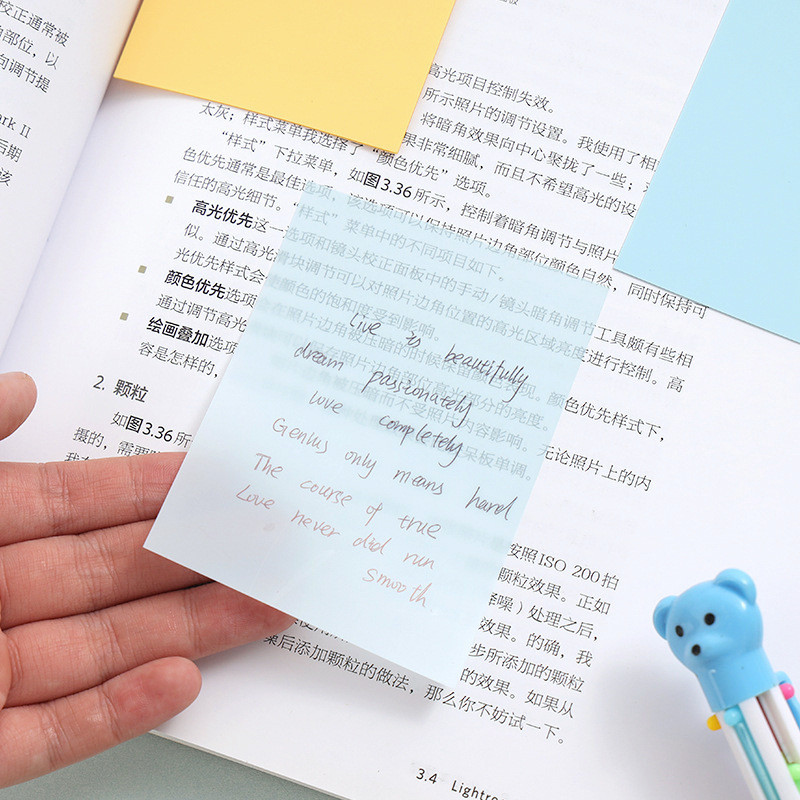 校正通常被
部位，以
向调节提
rk II
后期
该
高光项目控制失效。
所示照片的调节设置。我使用了相
太灰；样式菜单我选择了
将暗角效果向中心聚拢了一些；
果非常细腻，而且不希望高光的设
“样式”下拉菜单，如图3.36所示，控制着暗角调节与照片
“颜色优先”选项。
色优先通常是最佳选项，该选项可以保持照片边角部位颜色自然，同时保持可
信任的高光细节。“样式”菜单中的不同项目如下。
高光优先这一选项和镜头校正面板中的手动/镜头暗角调节工具颇有些相
似。通过高光滑块调节可以对照片边角位置的高光区域亮度进行控制。高
光优先样式会使颜色的饱和度受到影响。
颜色优先选项
颜色优先样式下，
通过调节高光
部分的亮度。
绘画叠加选项
而不受照片内容影响。无论照片上的内
容是怎样的，
呆板单调。
2. 颗粒
如图3.36所
按照ISO 200拍
摄的，需要
颗粒效果。正如
噪）处理之后，
效果。的确，我
步所添加的颗粒
后添加颗粒的做法，那么你不妨试一下。
的效果。如果从
3.4 Lightro
Live is beautifully
dream passionately
love completely
Genius only means hard
The course of true
Love never did run
smooth